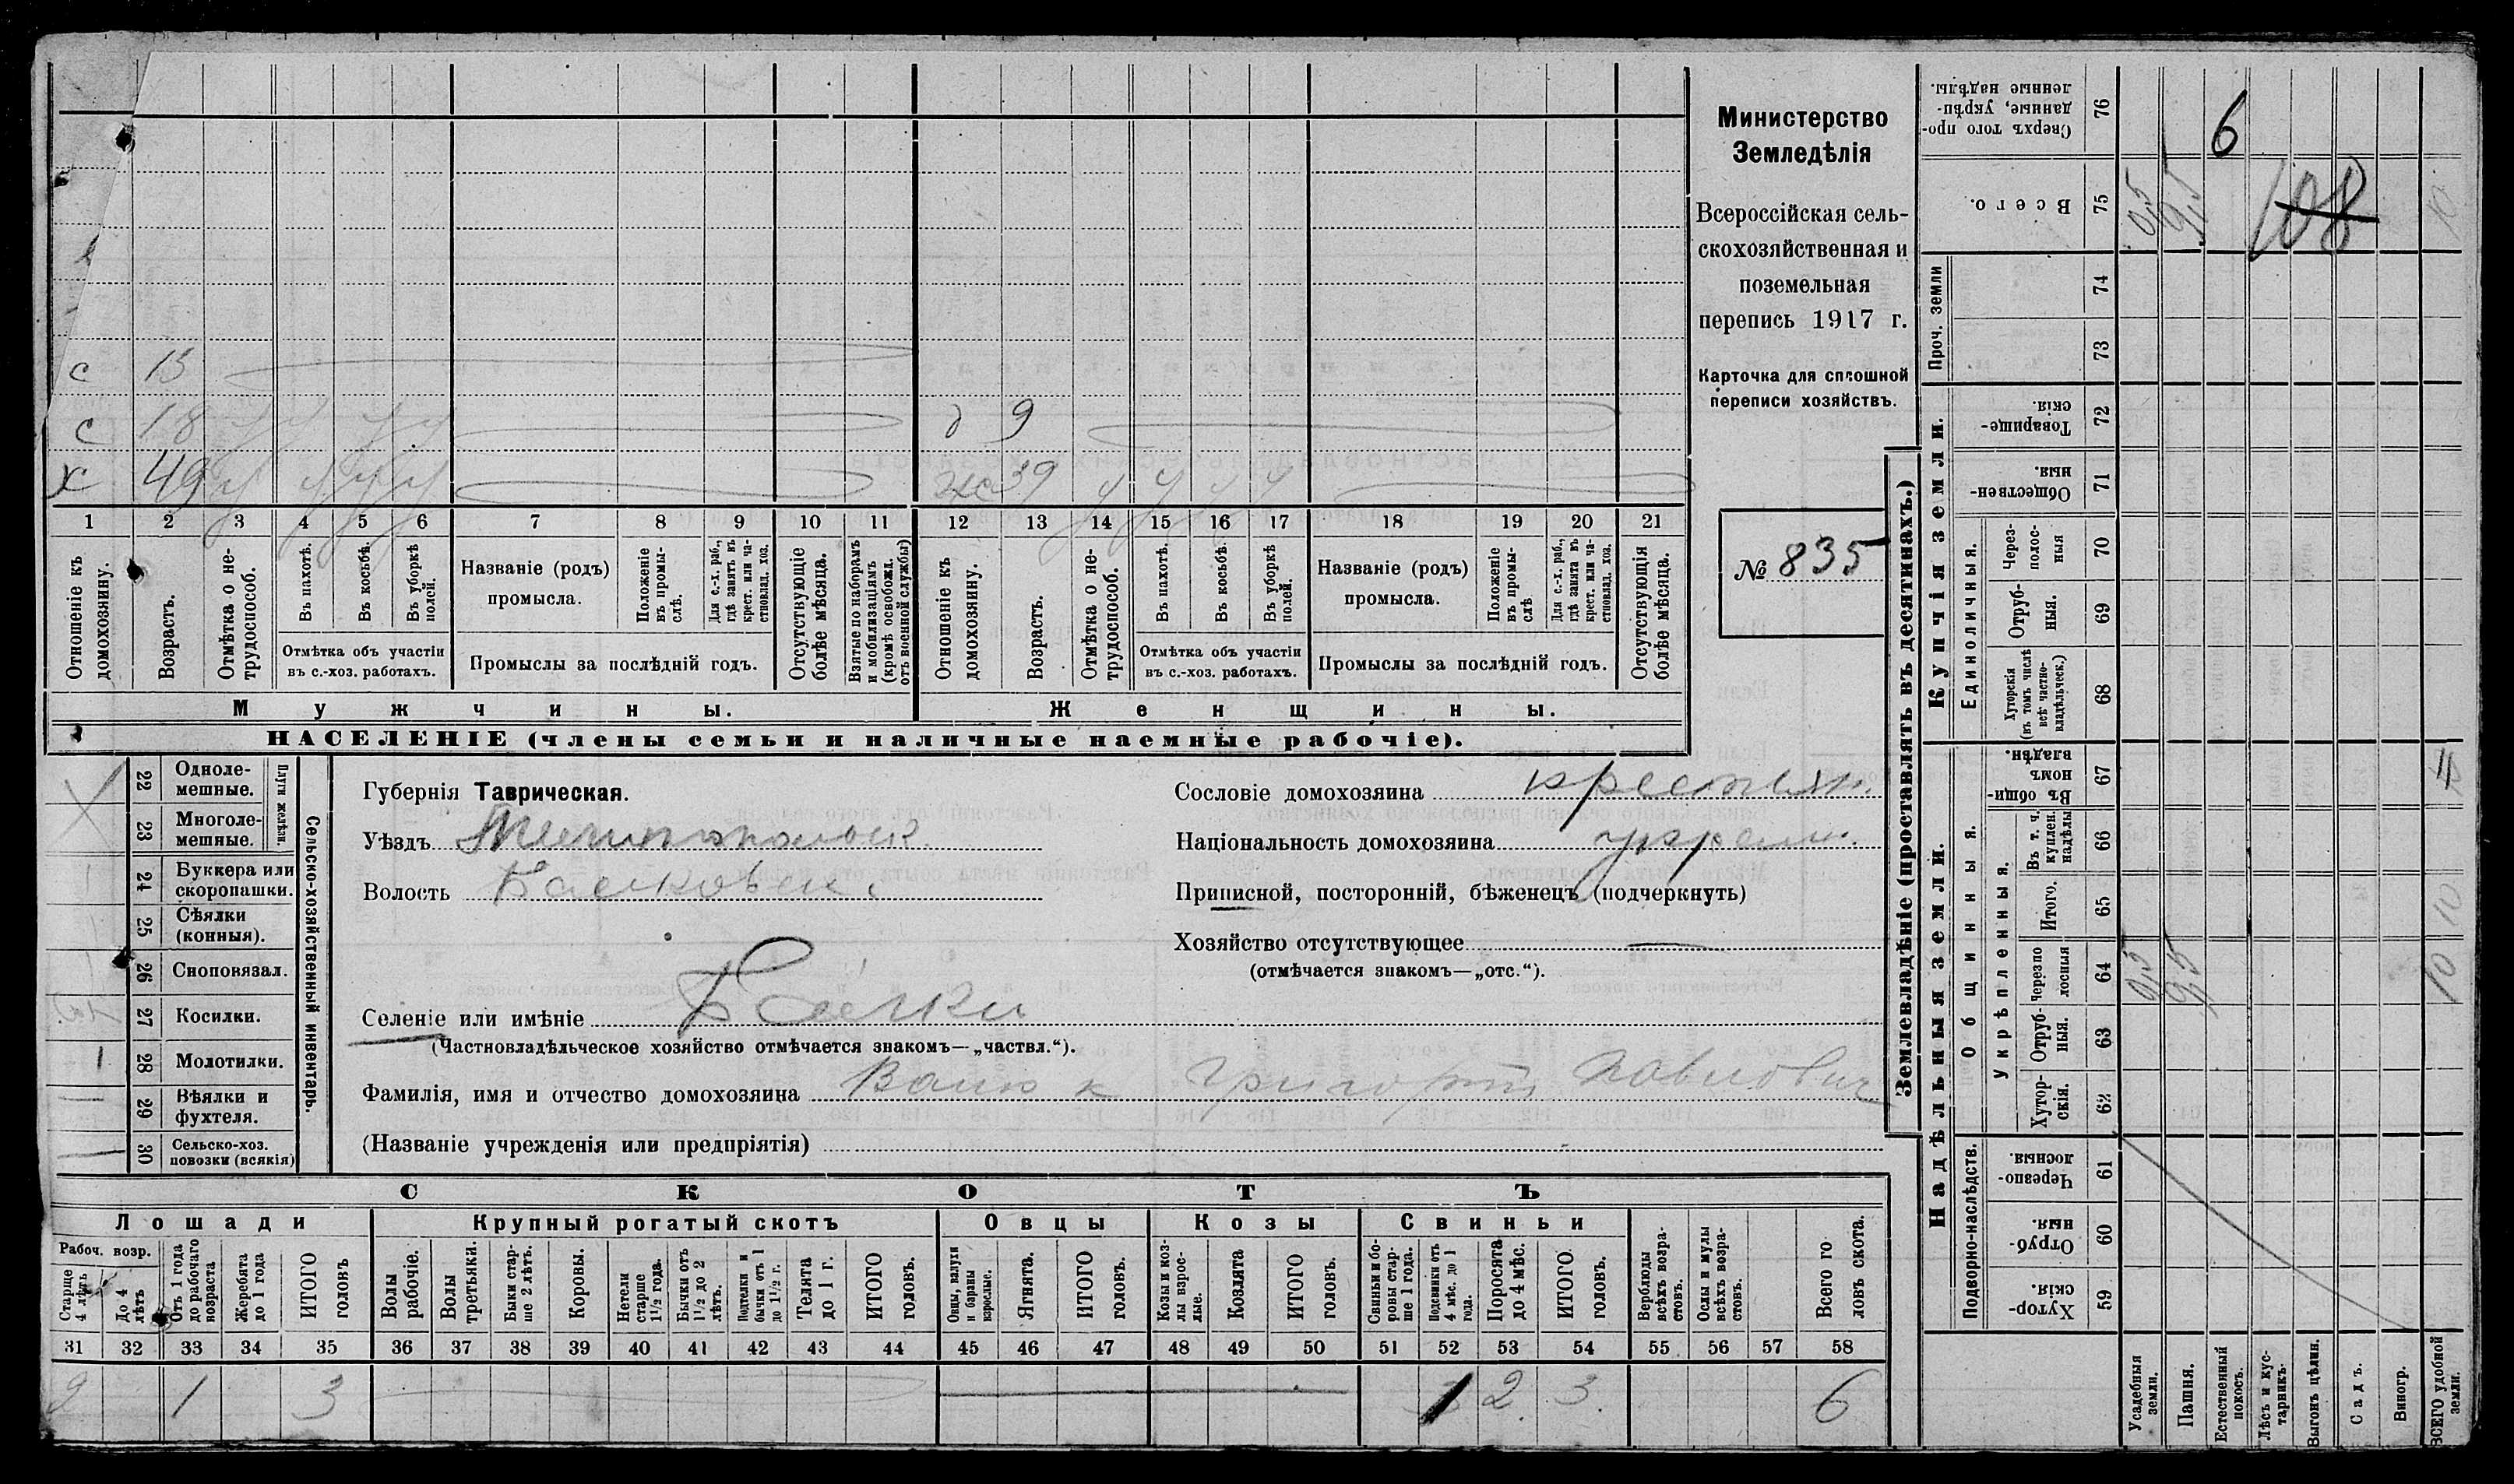 Министерство
Земледѣлія
Всероссійская сель-
скохозяйственная и
поземельная
перепись 1917 г.
Карточка для сплошной
переписи хозяйствъ.
№ 835
с 13
с 18
д 9
х 49
ж 39
1 2 3 4 5 6 7 8 9 10 11 12 13 14 15 16 17 18 19 20 21
Отношеніе къ домохозяину.
Возрастъ.
Отмѣтка о не-трудоспособ.
Въ пахотѣ.
Въ косьбѣ.
Въ уборкѣ полей.
Отмѣтка объ участіи въ с.-хоз. работахъ.
Названіе (родъ) промысла.
Положеніе въ промы-слѣ.
Для с.-х. раб., гдѣ занятъ въ крест. или ча-стновлад. хоз.
Промыслы за послѣдній годъ.
Отсутствующіе болѣе мѣсяца.
Взятые по наборамъ и мобилизаціямъ (кромѣ освобожд. отъ военной службы)
Отношеніе къ домохозяину.
Возрастъ.
Отмѣтка о не-трудоспособ.
Въ пахотѣ.
Въ косьбѣ.
Въ уборкѣ полей.
Отмѣтка объ участіи въ с.-хоз. работахъ.
Названіе (родъ) промысла.
Положеніе въ промы-слѣ
Для с.-х. раб., гдѣ занята въ крест. или ча-стновлад. хоз.
Промыслы за послѣдній годъ.
Отсутствующія болѣе мѣсяца.
Мужчины.
Женщины.
НАСЕЛЕНІЕ (члены семьи и наличные наемные рабочіе).
Сельско-хозяйственный инвентарь.
Плуги желѣзн.
22 Одноле-мешные.
23 Многоле-мешные.
24 Буккера или скоропашки.
25 Сѣялки (конныя).
26 Сноповязал.
27 Косилки.
1 28 Молотилки.
29 Вѣялки и фухтеля.
30 Сельско-хоз. повозки (всякія)
Губернія Таврическая.
Уѣздъ Мелитопольск.
Волость Балковск.
Селеніе или имѣніе Балки
(Частновладѣльческое хозяйство отмѣчается знакомъ—„частвл.“).
Фамилія, имя и отчество домохозяина Григорій Павлович
(Названіе учрежденія или предпріятія)
Сословіе домохозяина крестьян.
Національность домохозяина украин.
Приписной, посторонній, бѣженецъ (подчеркнуть)
Хозяйство отсутствующее —
(отмѣчается знакомъ—„отс.“).
СКОТЪ
Лошади
Крупный рогатый скотъ
Овцы
Козы
Свиньи
Рабоч. возр.
Старше 4 лѣтъ
До 4 лѣтъ
Отъ 1 года до рабочаго возраста
Жеребята до 1 года
ИТОГО головъ
Волы рабочіе.
Волы третьяки.
Быки стар-ше 2 лѣтъ.
Коровы.
Нетели старше 1½ года.
Бычки отъ 1½ до 2 лѣтъ.
Подтелки и бычки отъ 1 до 1½ г.
Телята до 1 г.
ИТОГО головъ.
Овцы, валухи и бараны взрослые.
Ягнята.
ИТОГО головъ.
Козы и коз-лы взрос-лые.
Козлята
ИТОГО головъ.
Свиньи и бо-ровы стар-ше 1 года.
Подсвинки отъ 4 мѣс. до 1 года.
Поросята до 4 мѣс.
ИТОГО головъ.
Верблюды всѣхъ возра-стовъ.
Ослы и мулы всѣхъ возра-стовъ.
Всего го-ловъ скота.
31 32 33 34 35 36 37 38 39 40 41 42 43 44 45 46 47 48 49 50 51 52 53 54 55 56 57 58
2 1 3 1 2 3 6
Землевладѣніе (проставлять въ десятинахъ.)
Надѣльныя земли.
Купчія земли.
Проч. земли
Подворно-наслѣдств.
Общинныя.
Укрѣпленныя.
Единоличныя.
Сверхъ того про-данные, укрѣп-ленные надѣлы. 76 6
Всего. 75 0,5 9,5 108 10
74
73
Товарище-скія. 72
Обществен-ныя. 71
Через-полос-ныя 70
Отруб-ныя. 69
Хуторскія (въ томъ числѣ всѣ частно-владѣльческ.) 68
Въ общи-номъ владѣн. 67
Въ т. ч. куплен. надѣлы 66
Итого. 65 10
Черезпо-лосныя 64 0,5 9,5 10
Отруб-ныя. 63
Хутор-скія. 62
Черезпо-лосныя. 61
Отруб-ныя. 60
Хутор-скія. 59
Усадебныя земли.
Пашня.
Естественный покосъ.
Лѣсъ и кус-тарникъ.
Выгонъ цѣлин.
Садъ.
Виногр.
ВСЕГО удобной земли.